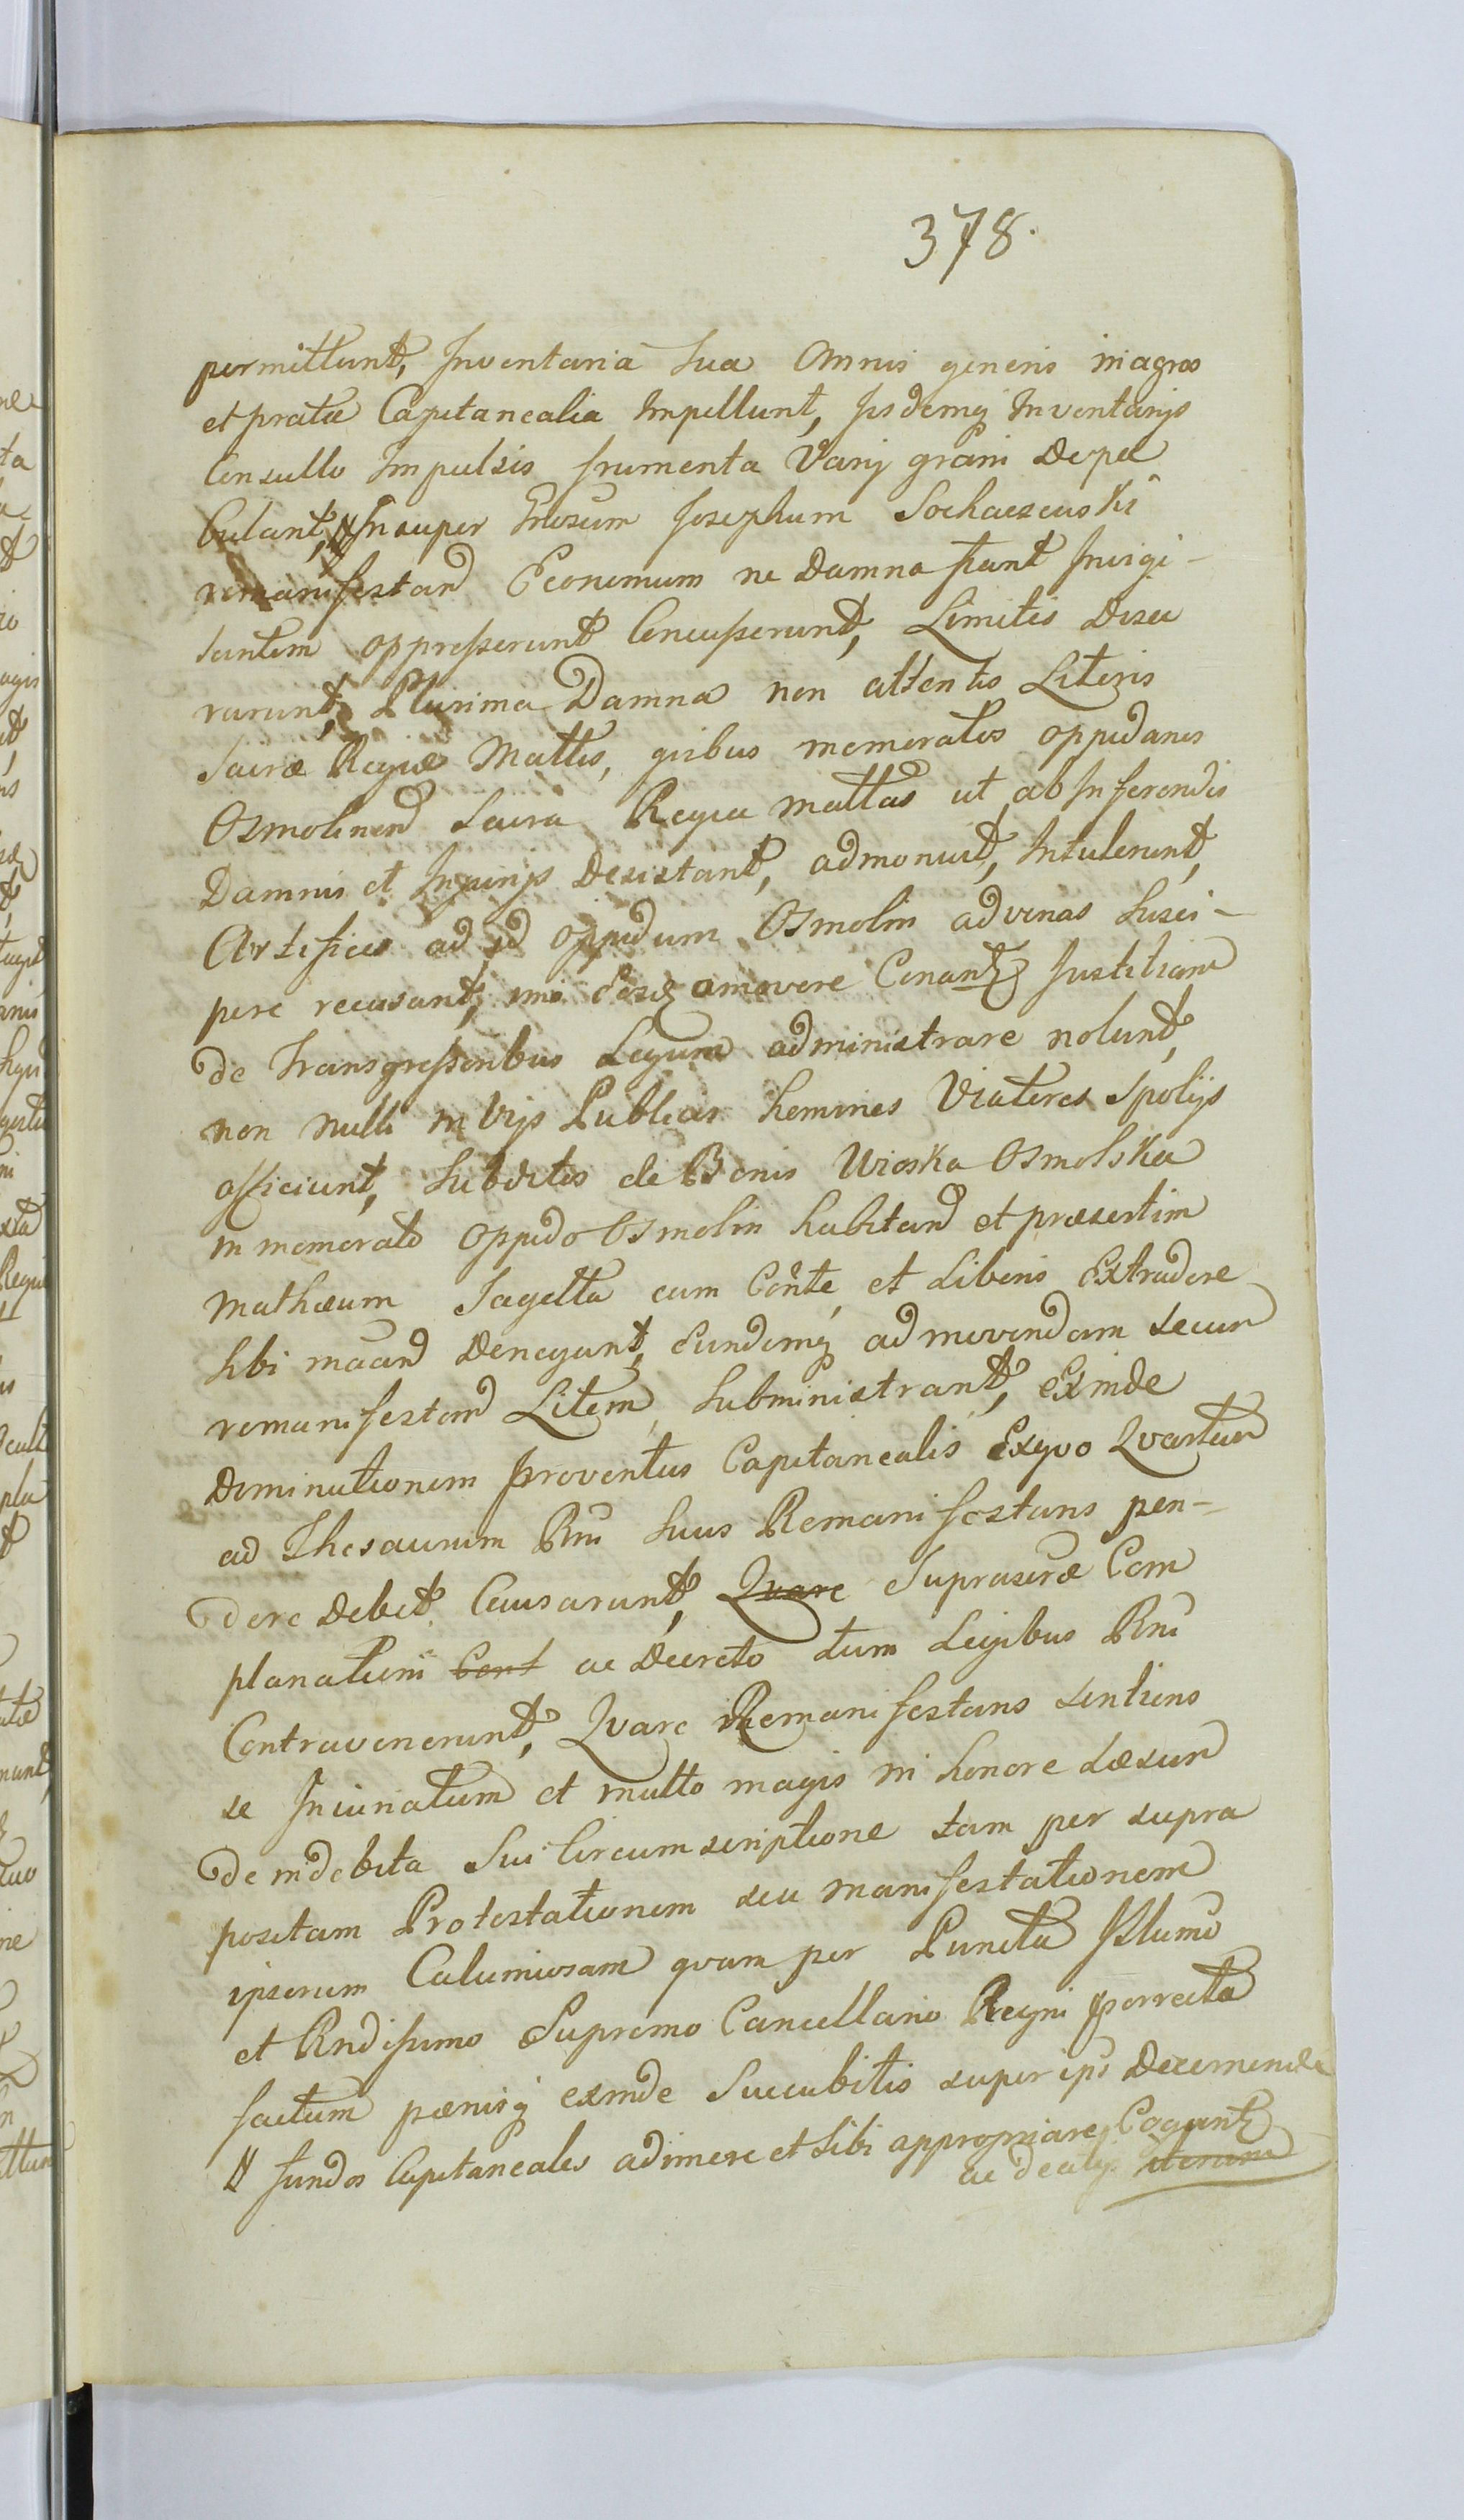 378.
permittunt, Inventaria sua Omnis generis in agros
et prata Capitanealia Impellunt, Iisdemq Inventarijs
Consulto Impulsis frumenta Varij grani Depa
bulant, # Insuper Gnosum Josephum Sochaczewski
remanifestand Œconomum ne Damna fiant Invigi-
lantem oppresserunt Concusserunt, Limites Disca
rarunt, Plurima Damna non attentis Literis
Sacræ Regiæ Mattis, quibus memoratos oppidanos
Osmolinen Sacra Regia Mattas ut ab Inferendis
Damnis et Injurijs Desistant, admonuit, Intulerunt,
Artifices ad id oppidum Osmolin advenas Susci-
pere recusant, imo eosdq amovere Conantq Justitiam
de Transgressoribus Legum administrare nolunt,
non nulli in Vijs Publicis homines Viatores Spolijs
afficiunt, Subditos de Bonis Wioska Osmolska
in memorato oppido Osmolin habitand et præsertim
Mathæum Jagełła cum Conte et Liberis Extradere
sibi maand Denegant, Eundemq ad movendam secum
remanifestand Litem Subministrant, Exinde
Diminutionem proventus Capitanealis Exquo Quartam
ad Thesaurum Rni Suus Remanifestans pen-
dere Debet Causarunt, Quare Suprascræ Com
planationi Cont ac Decreto tum Legibus Rni
Contravenerunt, Quare Remanifestans sentiens
se Iniuriatum et multo magis in honore Læsum
de indebita Sui Circumscriptione tam per supra
positam Protestationem seu manifestationem
ipsorum Calumniosam quam per Puncta Illumo
et Rndissimo Supremo Cancellario Regni porrecta
factum pænisq exinde Succubitis super ips Decernend
# fundos Capitaneales adimere et Sibi appropriare Cogunt
ac de alijs iterum